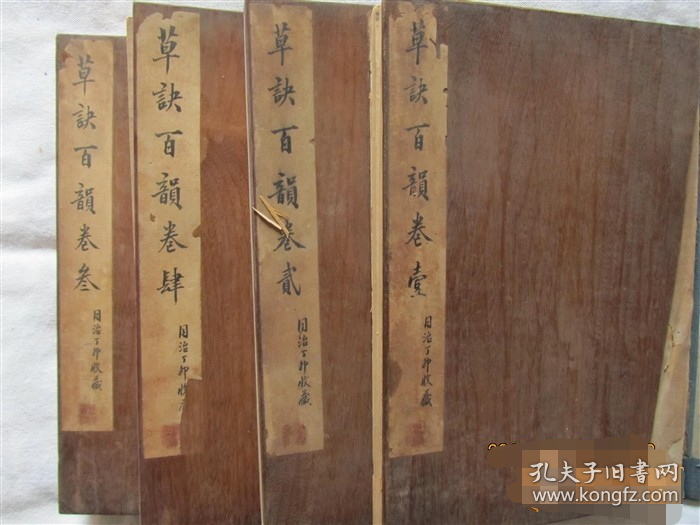 草訣百韻卷叁
同治丁卯收藏
草訣百韻卷肆
同治丁卯收
草訣百韻卷貳
同治丁卯收藏
草訣百韻卷壹
同治丁卯收藏
孔夫子旧书网
www.kongfz.com